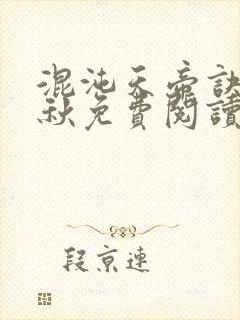 混沌天帝訣
秋免費閱讀
段京連